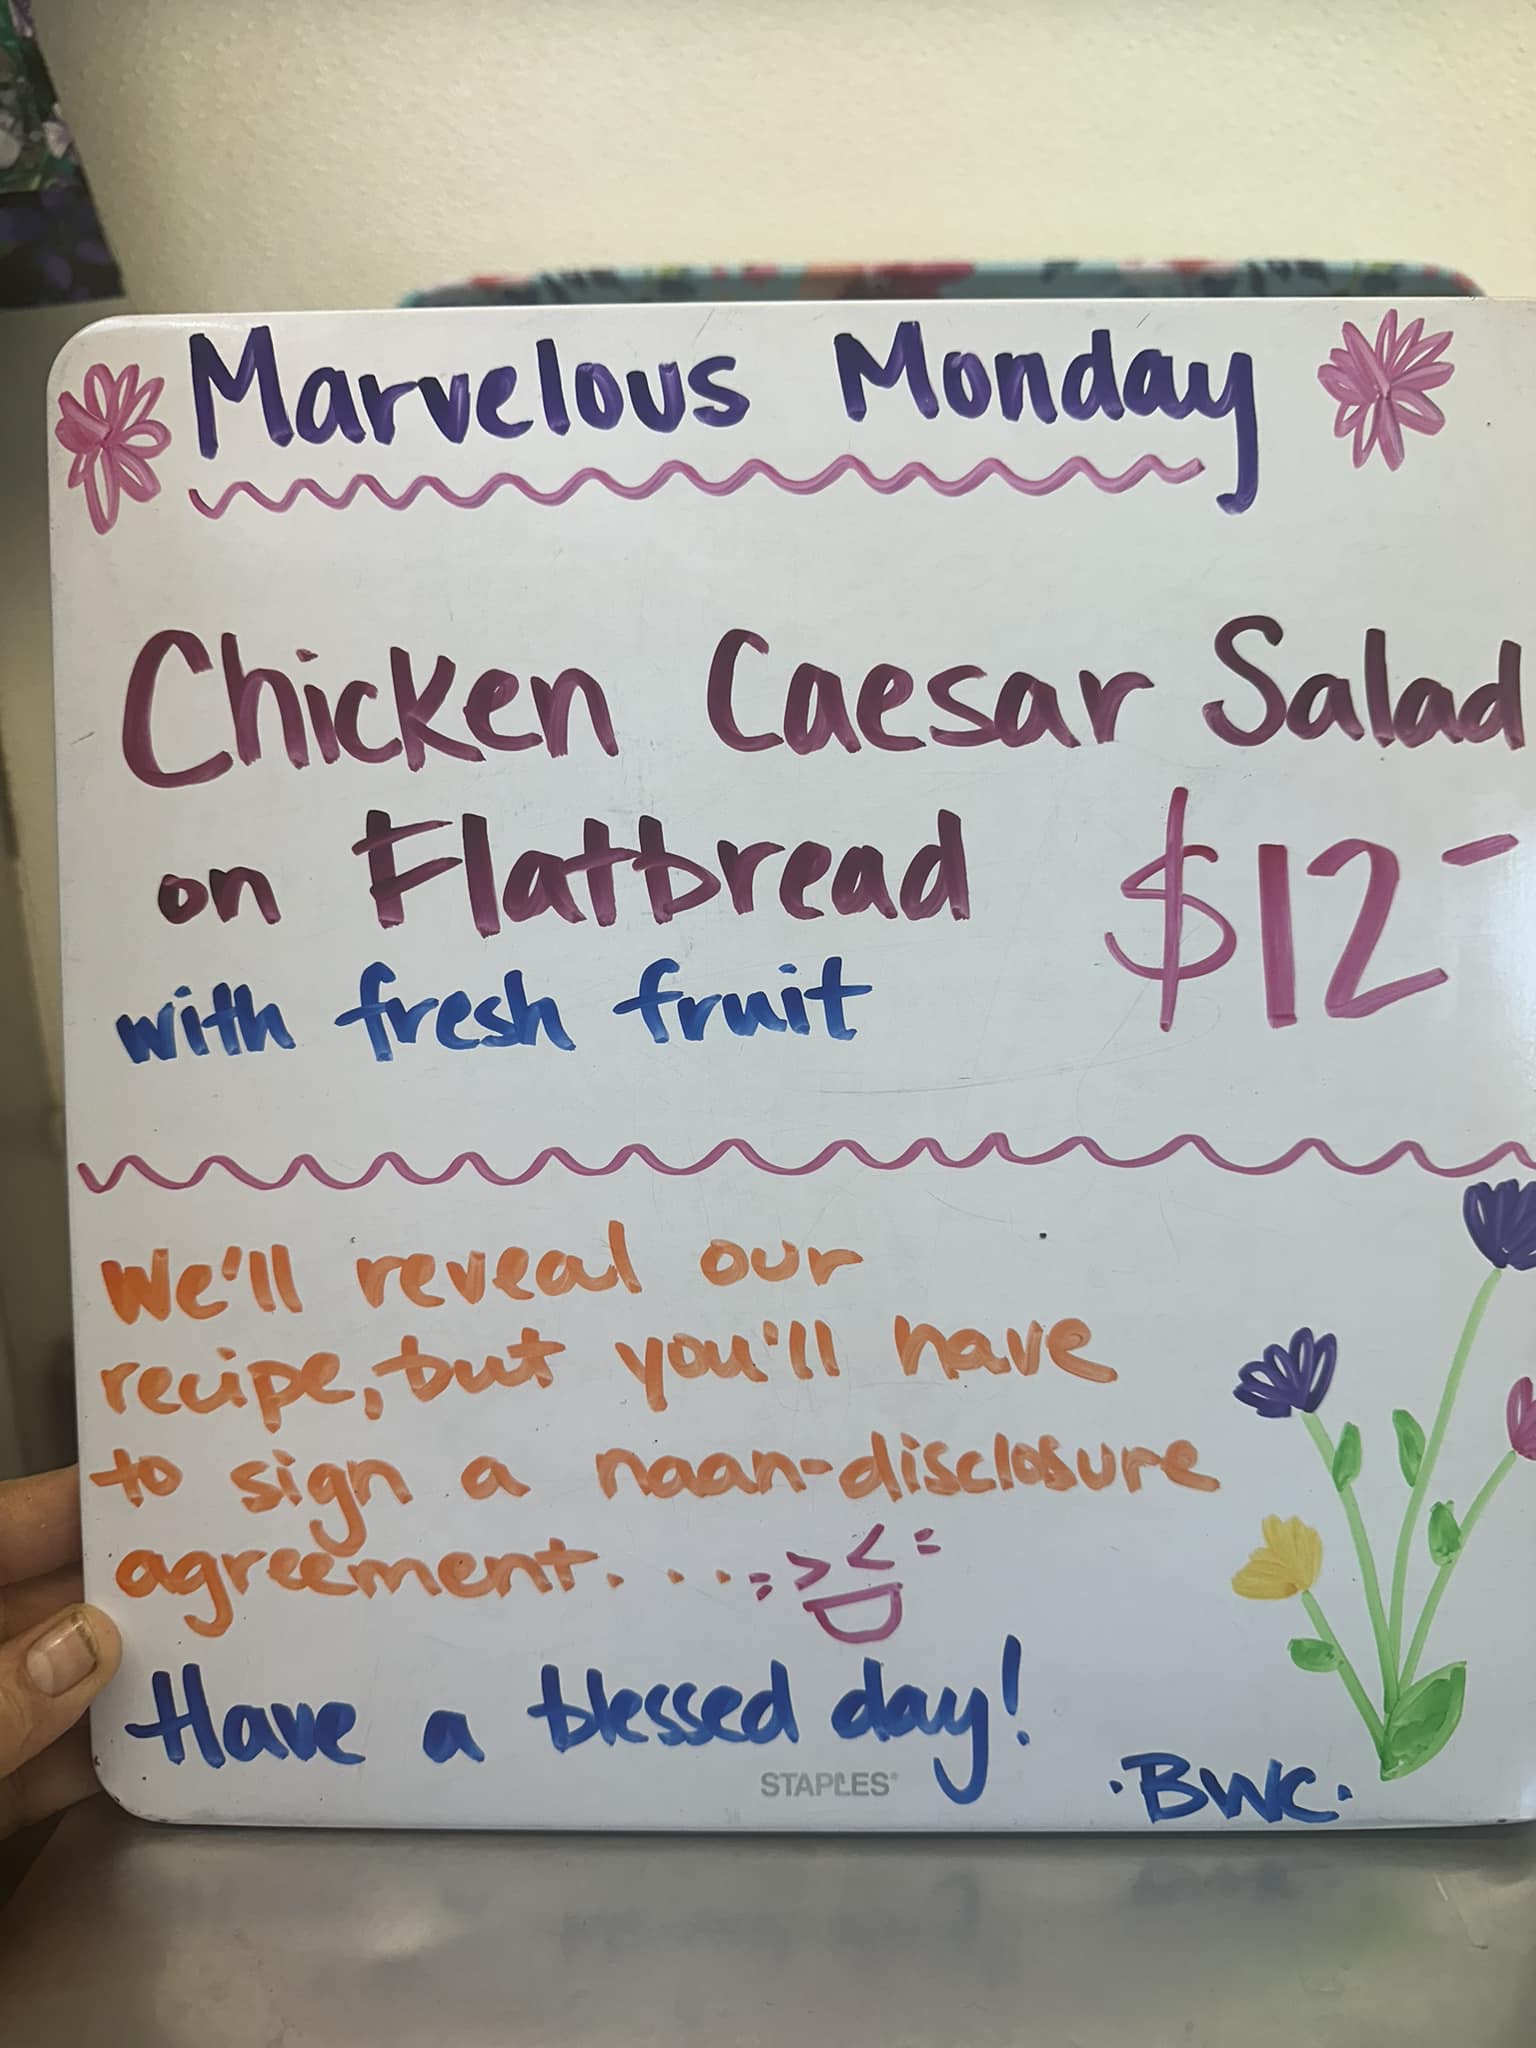 Marvelous Monday
Chicken Caesar Salad
on Flatbread $12-
with fresh fruit
We'll reveal our
recipe, but you'll have
to sign a naan-disclosure
agreement....
Have a blessed day!
STAPLES
·BWC·